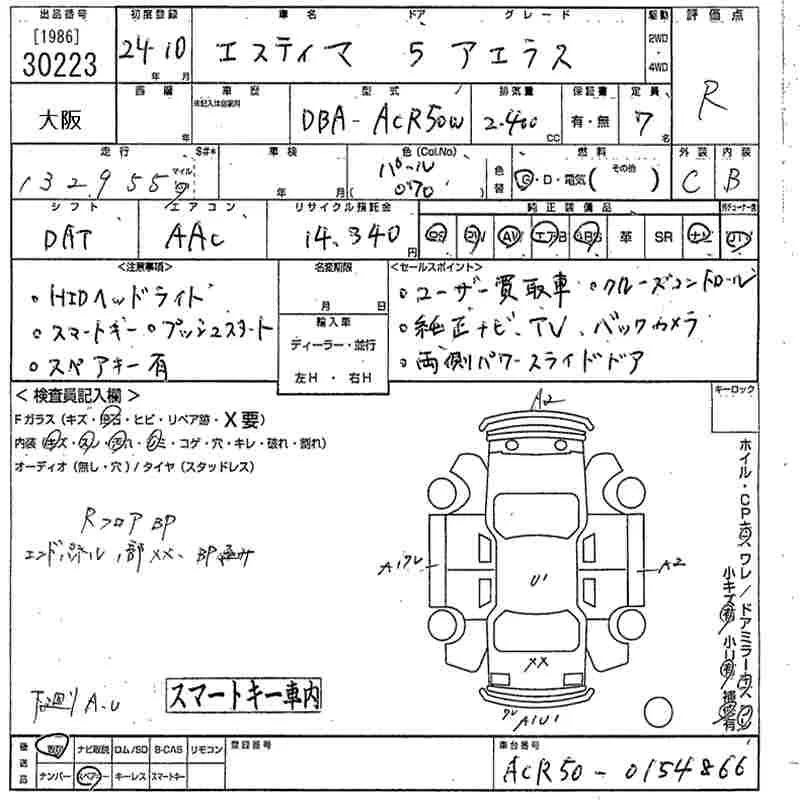 出品番号 初度登録 車名 ドア グレード 駆動 評価点
[1986]
30223
24 10 年 月
エスティマ 5 アエラス
2WD
・
4WD
R
大阪
西暦 車歴 型式 排気量 保証書 定員
未記入は自家用
年
DBA-ACR50W 2.400 CC 有・無 7 名
走行 S#* 車検 色(Col.No) 燃料 外装 内装
132955 マイル
年 月
パール
070
色替
G・D・電気( その他 )
C B
シフト エアコン リサイクル預託金 純正装備品
DAT AAC 14,340 円
PS PW AW エアB ABS 革 SR ナビ TV
<注意事項> 名変期限 <セールスポイント>
月 日
・HIDヘッドライト
・スマートキー ・プッシュスタート
・スペアキー有
輸入車
ディーラー・並行
左H ・ 右H
・ユーザー買取車 ・クルーズコントロール
・純正ナビ、TV、バックカメラ
・両側パワースライドドア
<検査員記入欄>
キーロック
Fガラス(キズ・飛石・ヒビ・リペア跡・X要)
内装(キズ・スレ・汚れ・シミ・コゲ・穴・キレ・破れ・割れ)
オーディオ(無し・穴)/タイヤ(スタッドレス)
Rフロア BP
エンドパネル 1部XX、BP
下廻り A.U
スマートキー車内
A2
A1ワレ
U1
A2
XX
ワレ
A1U1
ホイル・CPキズワレ/ドアミラーキズ
小キズ有 小U有
後送品
取説 ナビ取説 ロム/SD B-CAS リモコン
ナンバー スペアキー キーレス スマートキー
登録番号
車台番号
ACR50-0154866